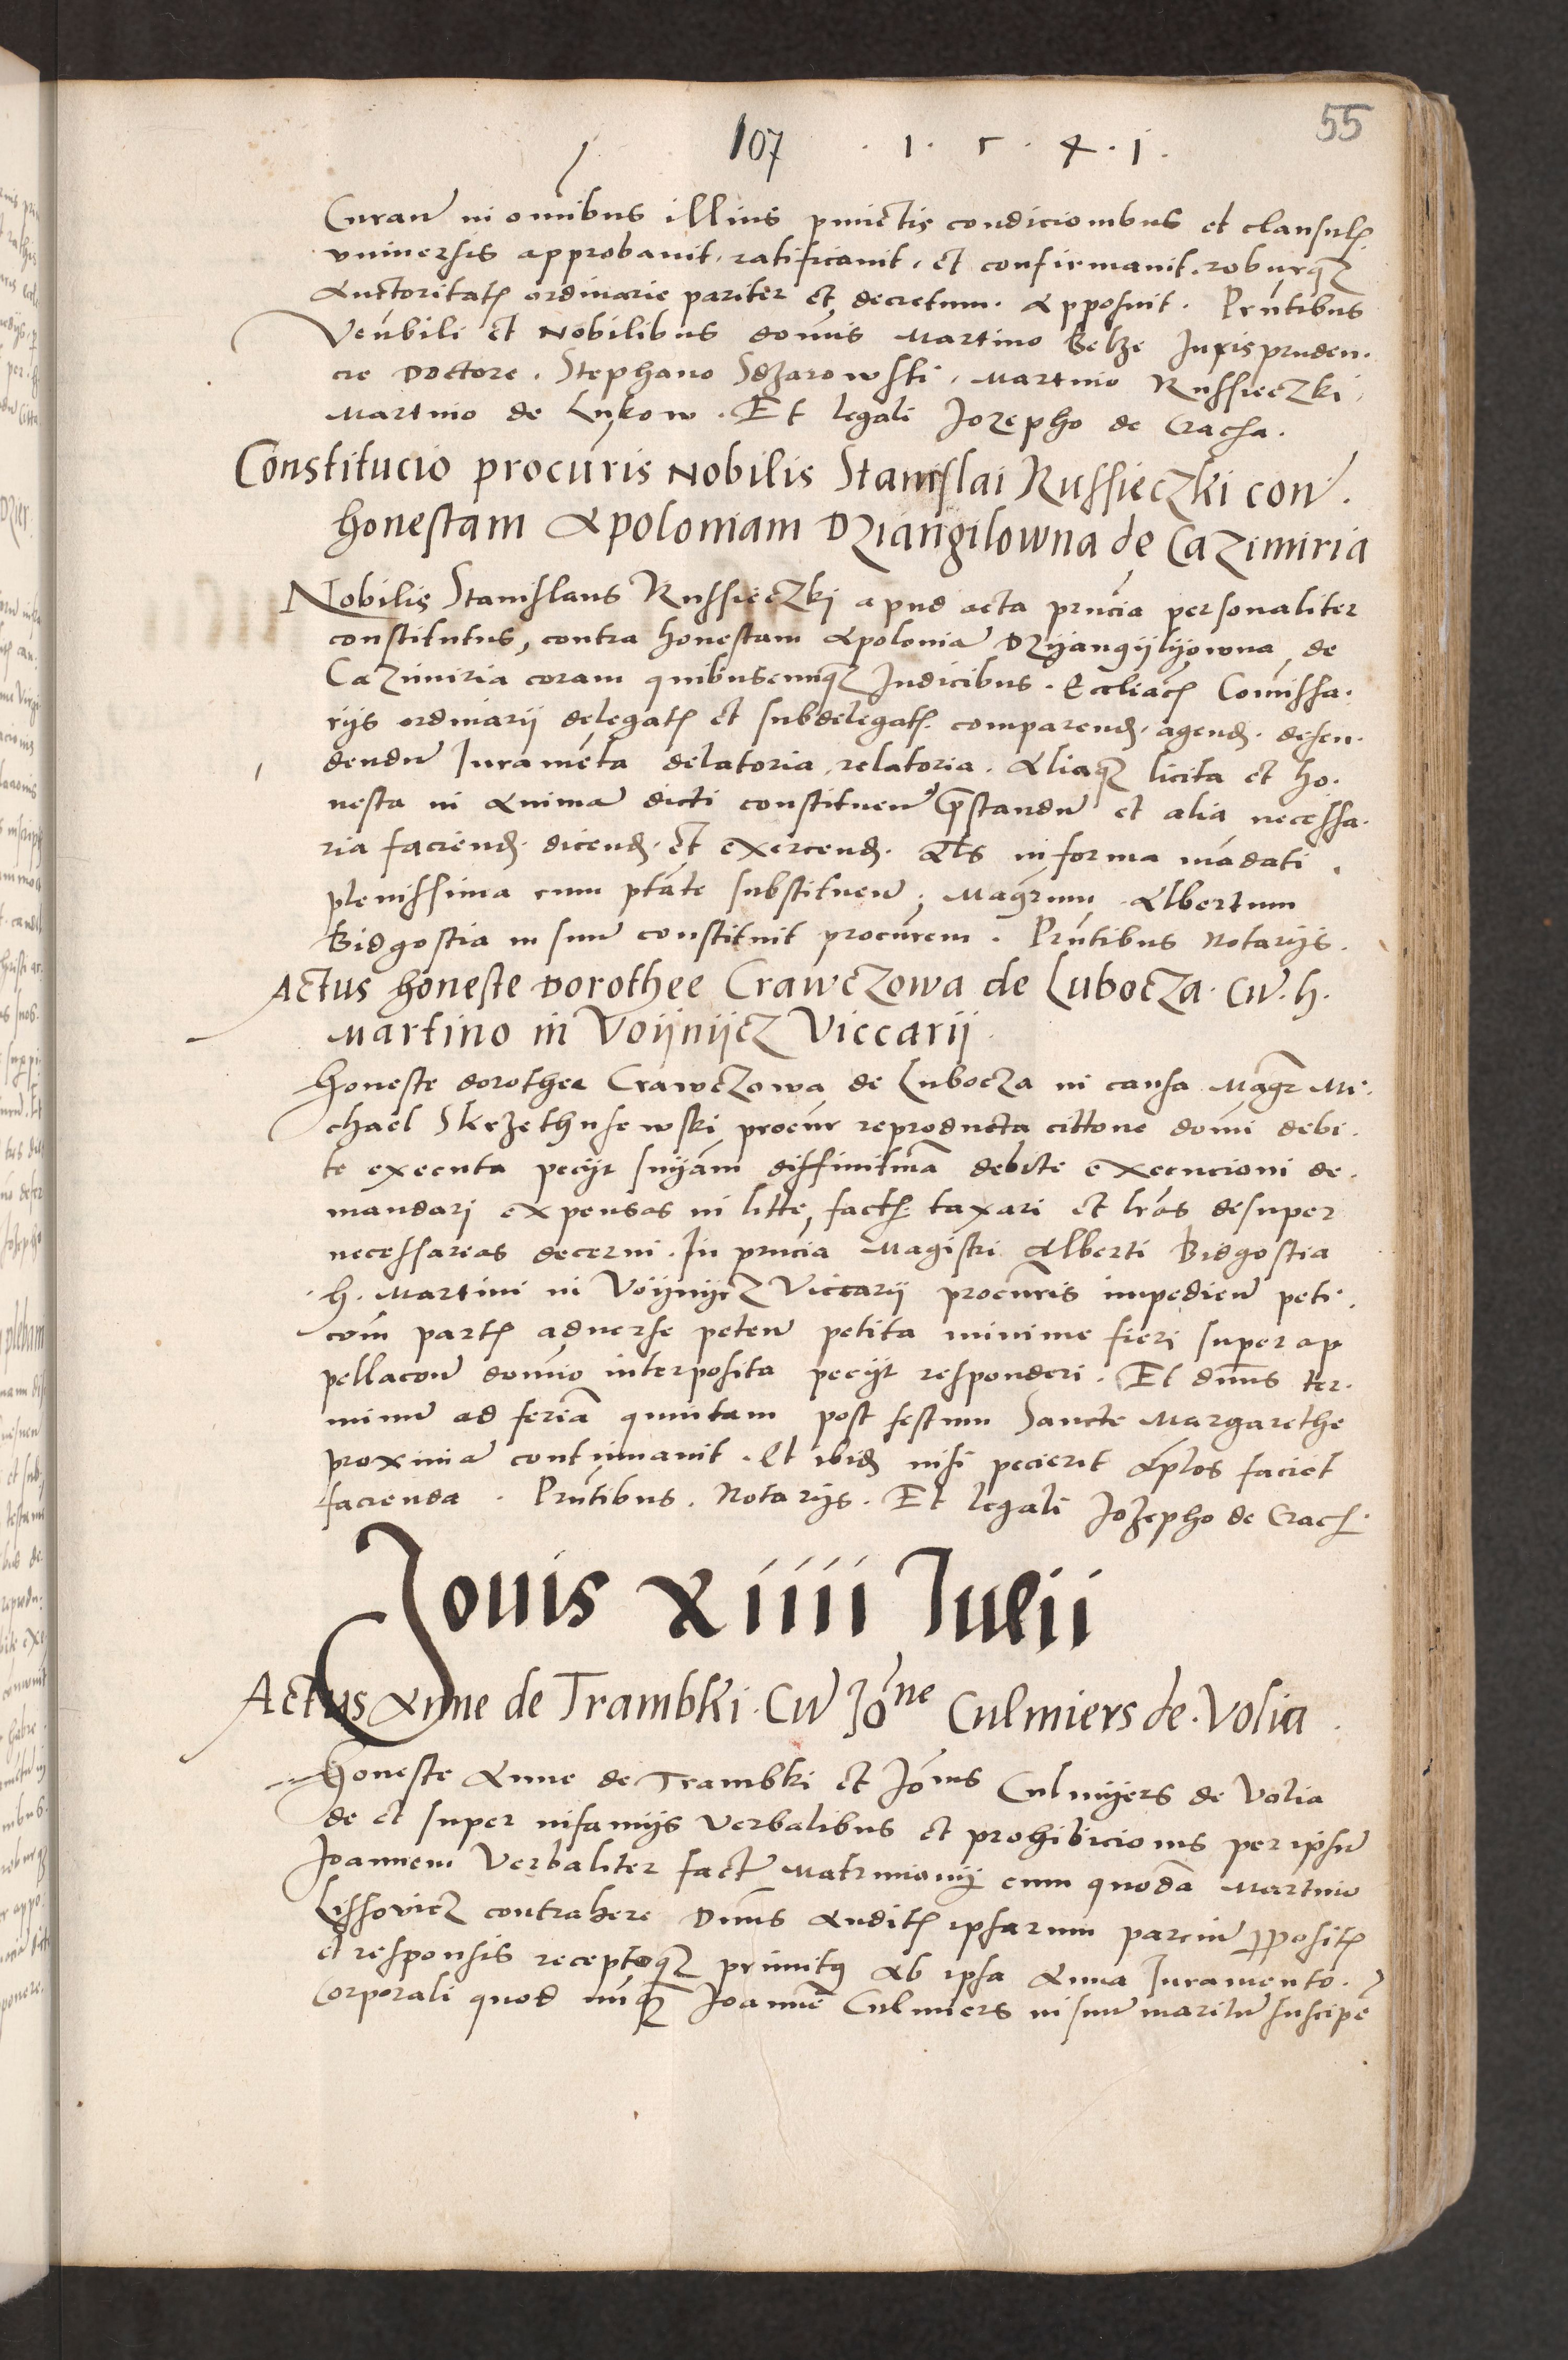 107 . 1 . 5 . 4 . 1 . 55
Curam in omnibus illius punctis condicionibus et clausulis
universis approbavit, ratificavit, et confirmavit, roburq3
Auctoritatis ordinarie pariter et decretum. Apposuit. Pñtibus
Veñbili et Nobilibus dominis Martino Belze Jurispruden.
cie Doctore. Stephano Sdzarowski, Martino Russieczki,
Martino de Lukow. Et legali Jozepho de Cracha.
Constitucio procuris Nobilis Stanislai Russieczki con̄.
honestam Apoloniam Dziangilowna de Cazimiria
Nobilis Stanislaus Russieczkj apud acta pñcia personaliter
constitutus, contra honestam Apoloniā Dzyangylyowna de
Cazimiria coram quibuscumq3 Judicibus. Eccliacis Comissa.
rijs ordinarij delegatis et subdelegatis. comparend. agend. defen.
dendū Juramēta delatoria, relatoria. Aliaq3 licita et ho.
nesta in Animā dicti constituen̄ p̄standū et alia necessa.
ria faciend. dicend. et exercend. Als in forma mādati
plenissima cum ptāte substituen̄, Magrum Albertum
Bidgostia in suū constituit procūrem. Pñtibus Notarijs.
Actus honeste Dorothee Crawczowa de Luborza. Cū. h.
Martino in Voijnijcz Viccarij
Honeste dorothee Crawczowa de Luborza in causa Magr Mi.
chael Skrzethusewski procūr reproducta cittone domi debi.
te executa peciit snīam diffinitiuā debite execucioni de.
mandari expensas in litte, factis taxari et lr̄as desuper
necessarias decerni. In pñcia Magistri Alberti Bidgostia
h. Martini in Voijnijcz Viccarij procūris impedien̄ peti.
com̄ partis adverse peten̄ petita minime fieri super ap
pellacon̄ domīo interposita peciit responderi. Et dnūs ter.
minū ad feriā quintam post festum Sancte Margarethe
proximā continuavit. Et ibid nisi pecierit Aplos faciet
facienda. Pñtibus. Notarijs. Et legali Jozepho de Crach.
Jovis xiiii Julii
Actus Anne de Trambki. Cū Jo͞ne Culmiers de. Volia.
Honeste Anne de Trambki et Jōnis Culmijers de Volia
de et super infamijs verbalibus et prohibicionis per ipsū
Joannem Verbaliter factū Matrimonij cum quodā Martino
Lissovicz contrahere Dnūs Auditis ipsarum parciū p̄positis
et responsis receptoq3 primitus Ab ipsa Anna Juramento.
Corporali quod nūq3 Joannē Culmiers in suū maritū suscipē